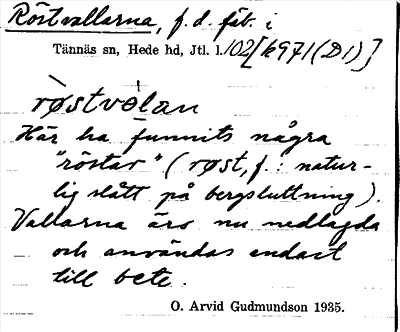 Röstvallarna, f. d. fäb. i
Tännäs sn, Hede hd, Jtl. l. 102 [k971 (D1)]
røstvàlan
Här ha funnits några
"röstar" (røst, f.: natur-
lig slått på bergsluttning).
Vallarna äro nu nedlagda
och användas endast
till bete.
O. Arvid Gudmundson 1935.